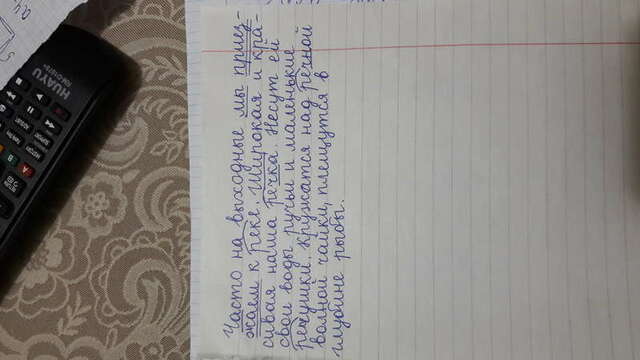 HUAYU
Часто на выходные мы приез-
жаем к реке. Широкая и кра-
сивая наша речка. Несут ей
свои воды ручьи и маленькие
речушки. Кружатся над речной
волной чайки, плещутся в
глубине рыбы.